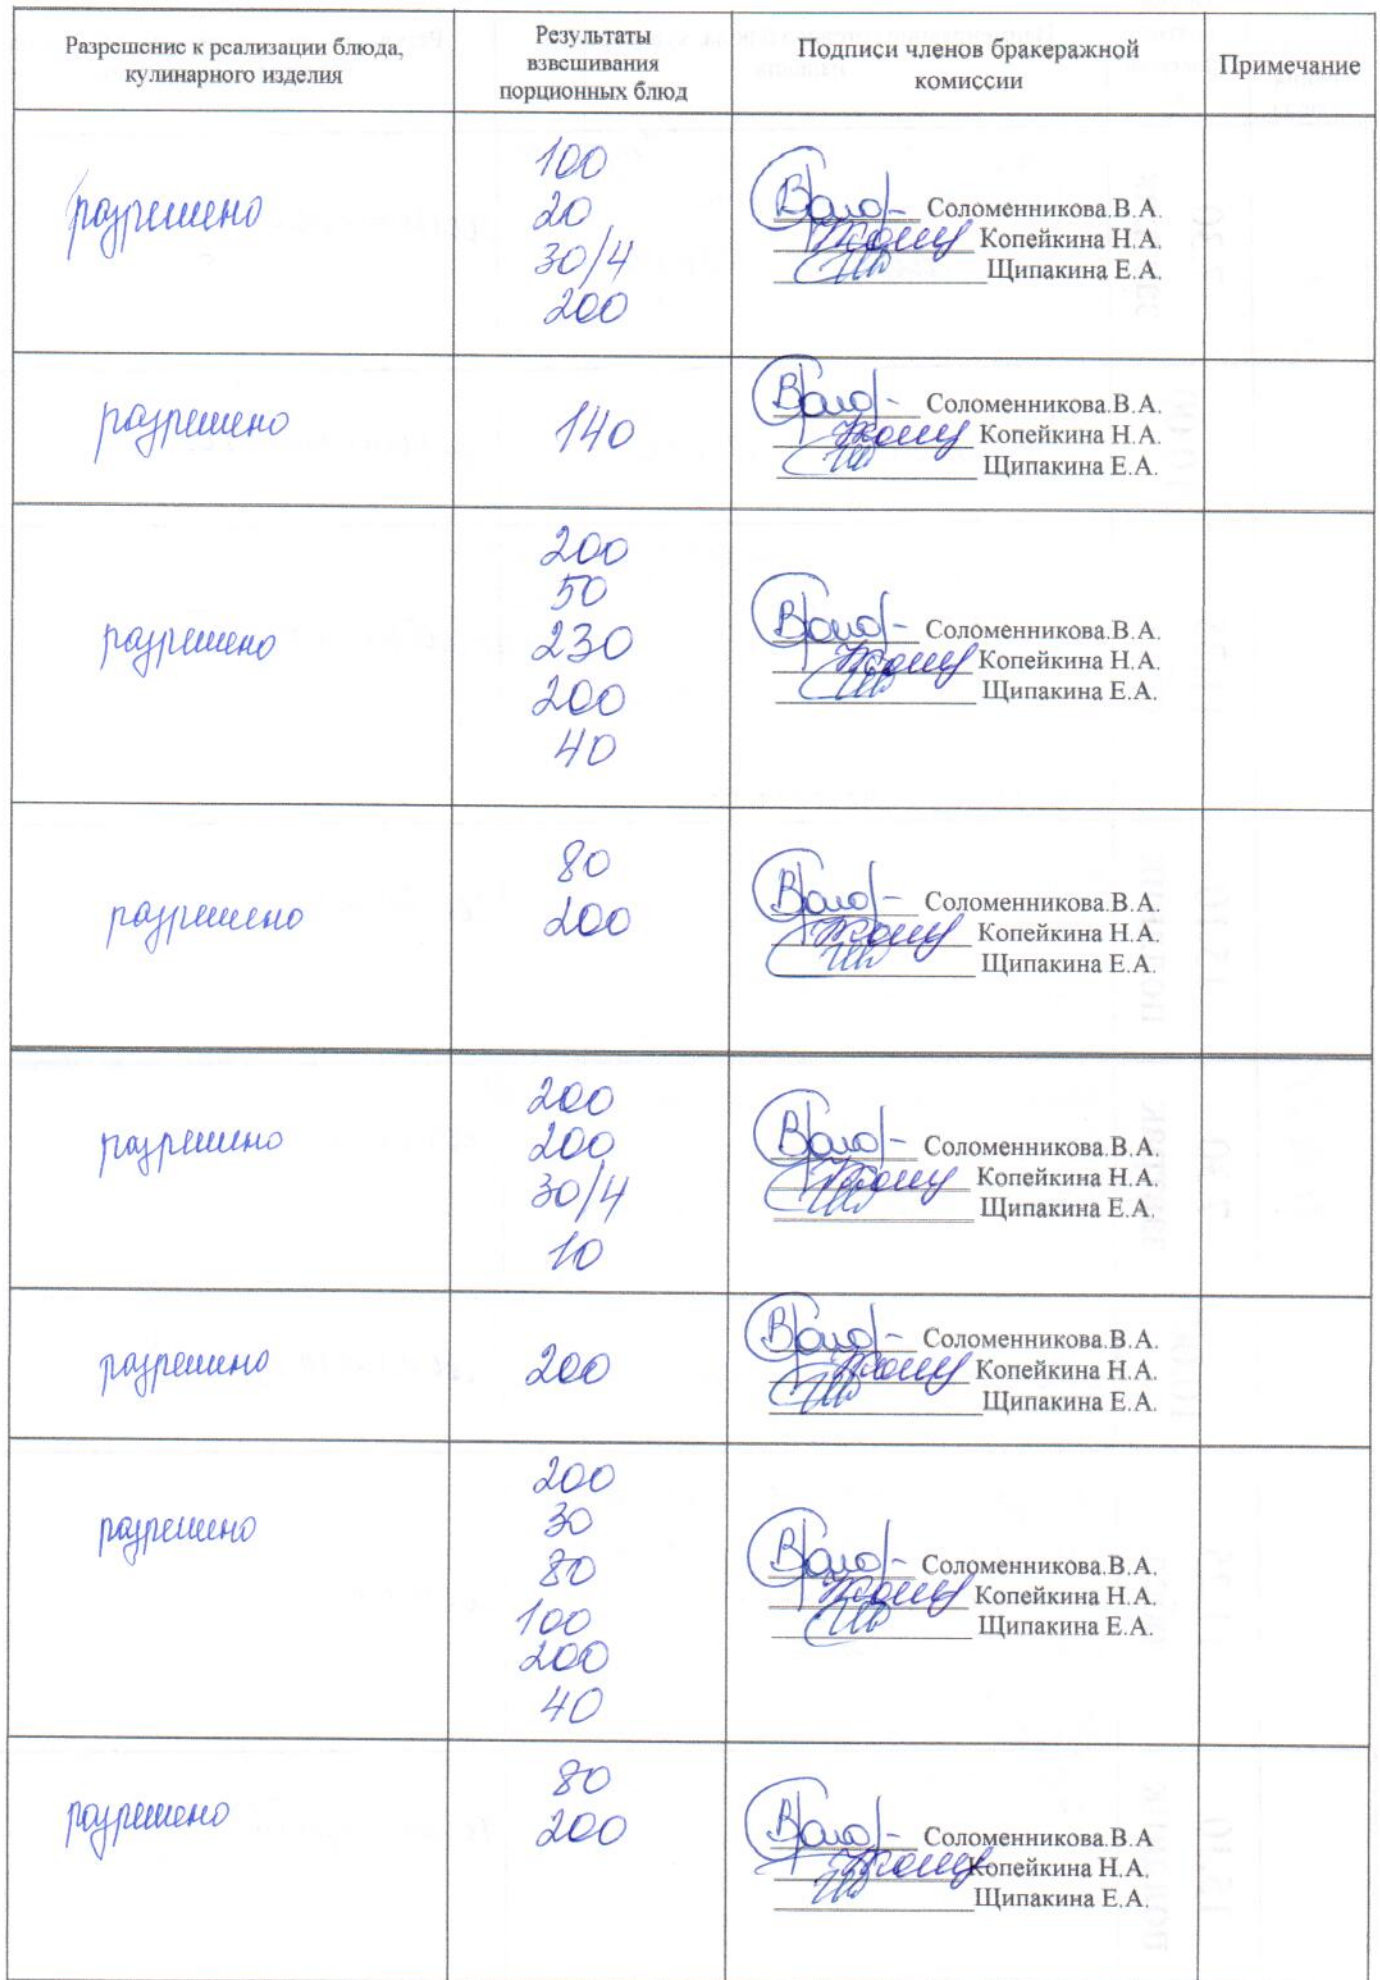 Разрешение к реализации блюда,
кулинарного изделия
Результаты
взвешивания
порционных блюд
Подписи членов бракеражной
комиссии
Примечание
разрешено
100
20
30/4
200
Соломенникова.В.А.
Копейкина Н.А.
Щипакина Е.А.
разрешено
140
Соломенникова.В.А.
Копейкина Н.А.
Щипакина Е.А.
разрешено
200
50
230
200
40
Соломенникова.В.А.
Копейкина Н.А.
Щипакина Е.А.
разрешено
80
200
Соломенникова.В.А.
Копейкина Н.А.
Щипакина Е.А.
разрешено
200
200
30/4
10
Соломенникова.В.А.
Копейкина Н.А.
Щипакина Е.А.
разрешено
200
Соломенникова.В.А.
Копейкина Н.А.
Щипакина Е.А.
разрешено
200
30
80
100
200
40
Соломенникова.В.А.
Копейкина Н.А.
Щипакина Е.А.
разрешено
80
200
Соломенникова.В.А
Копейкина Н.А.
Щипакина Е.А.